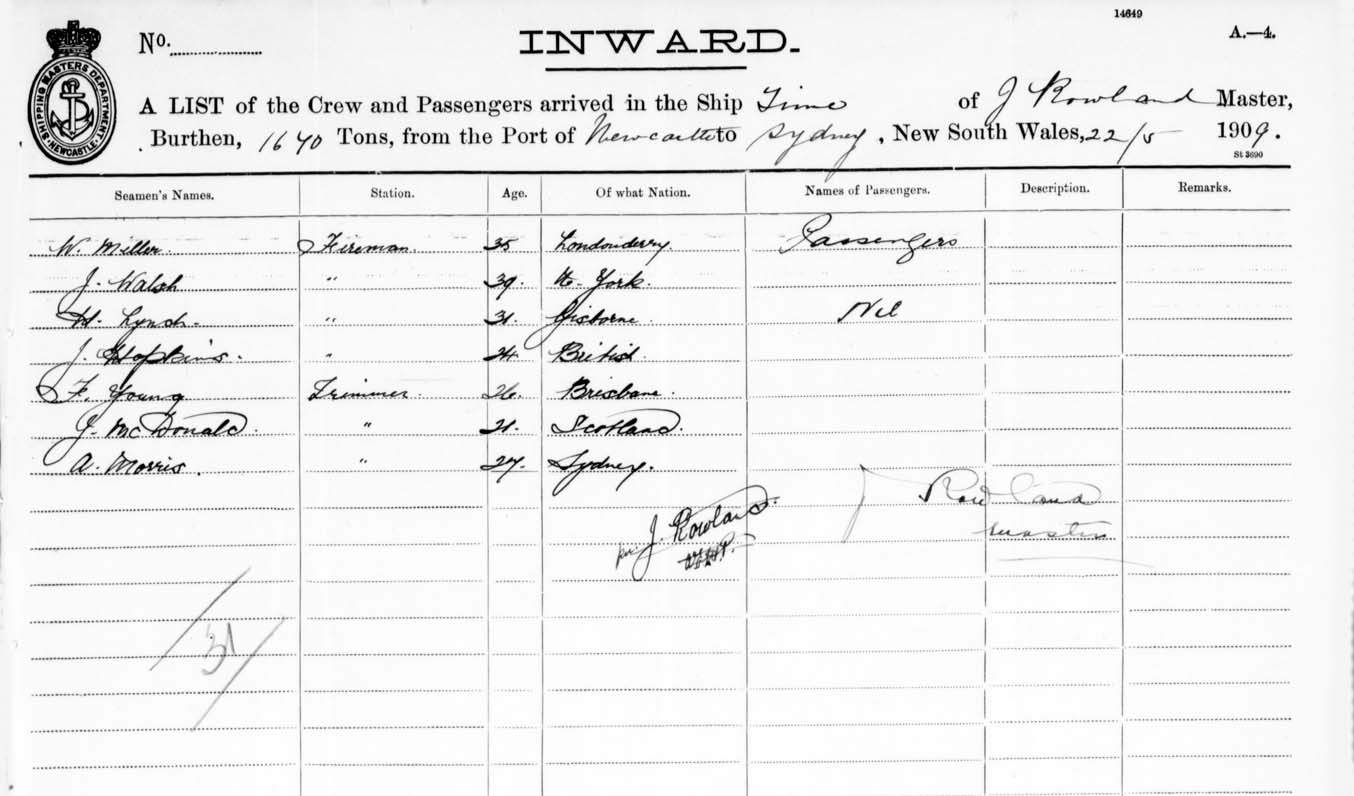 14649
No. INWARD. A.—4.
A LIST of the Crew and Passengers arrived in the Ship Time of J Rowland Master,
Burthen, 1640 Tons, from the Port of Newcastle to Sydney, New South Wales, 22/5 1909.
SHIPPING MASTERS DEPARTMENT NEWCASTLE
St 3690
Seamen's Names. Station. Age. Of what Nation. Names of Passengers. Description. Remarks.
W. Miller Fireman 35 Londonderry. Passengers
J. Walsh " 39. N. York.
H. Lynch. " 31. Gisborne. Nil
J. Hopkins. " 24. British.
F. Young Trimmer. 26. Brisbane.
J. McDonald. " 21. Scotland.
A. Morris. " 27. Sydney.
J Rowland
per J. Rowland. Master
31